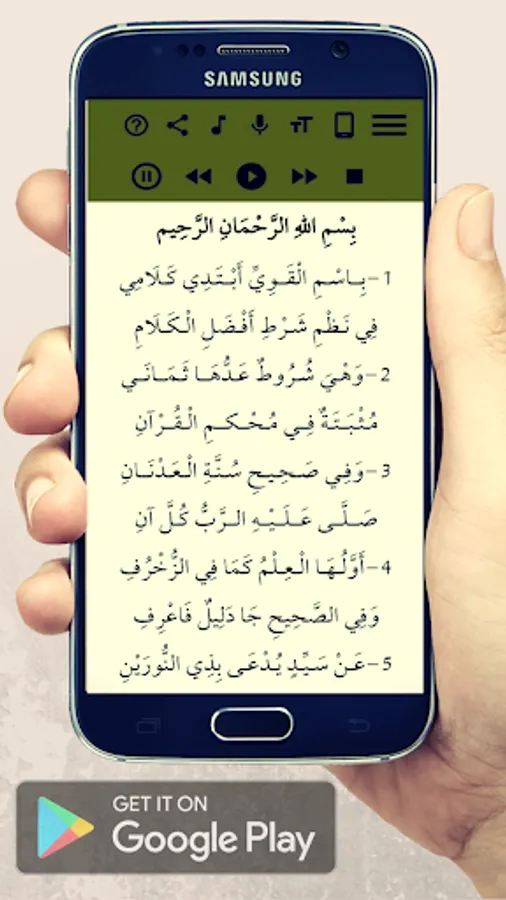 SAMSUNG
بِسْمِ اللهِ الرَّحْمَانِ الرَّحِيم
1-بِـاسْـمِ الْقَـوِيِّ أَبْـتَدِي كَـلَامِي
فِي نَـظْمِ شَـرْطِ أَفْـضَلِ الْـكَـلَامِ
2-وَهْيَ شُـرُوطٌ عَـدُّهَـا ثَـمَـانَـي
مُـثْـبَـتَـةٌ فِـي مُـحْـكَـمِ الْـقُـرْآنِ
3-وَفِي صَـحِيحِ سُـنَّةِ الْـعَـدْنَـانِ
صَـلَّـى عَـلَـيْـهِ الـرَّبُّ كُـلَّ آنِ
4-أَوَّلُـهَـا الْـعِـلْمُ كَمَا فِي الزُّخْرُفِ
وَفِي الصَّحِيحِ جَا دَلِيلٌ فَاعْرِفِ
5-عَـنْ سَـيِّـدٍ يُـدْعَـى بِذِي النُّورَيْنِ
GET IT ON
Google Play